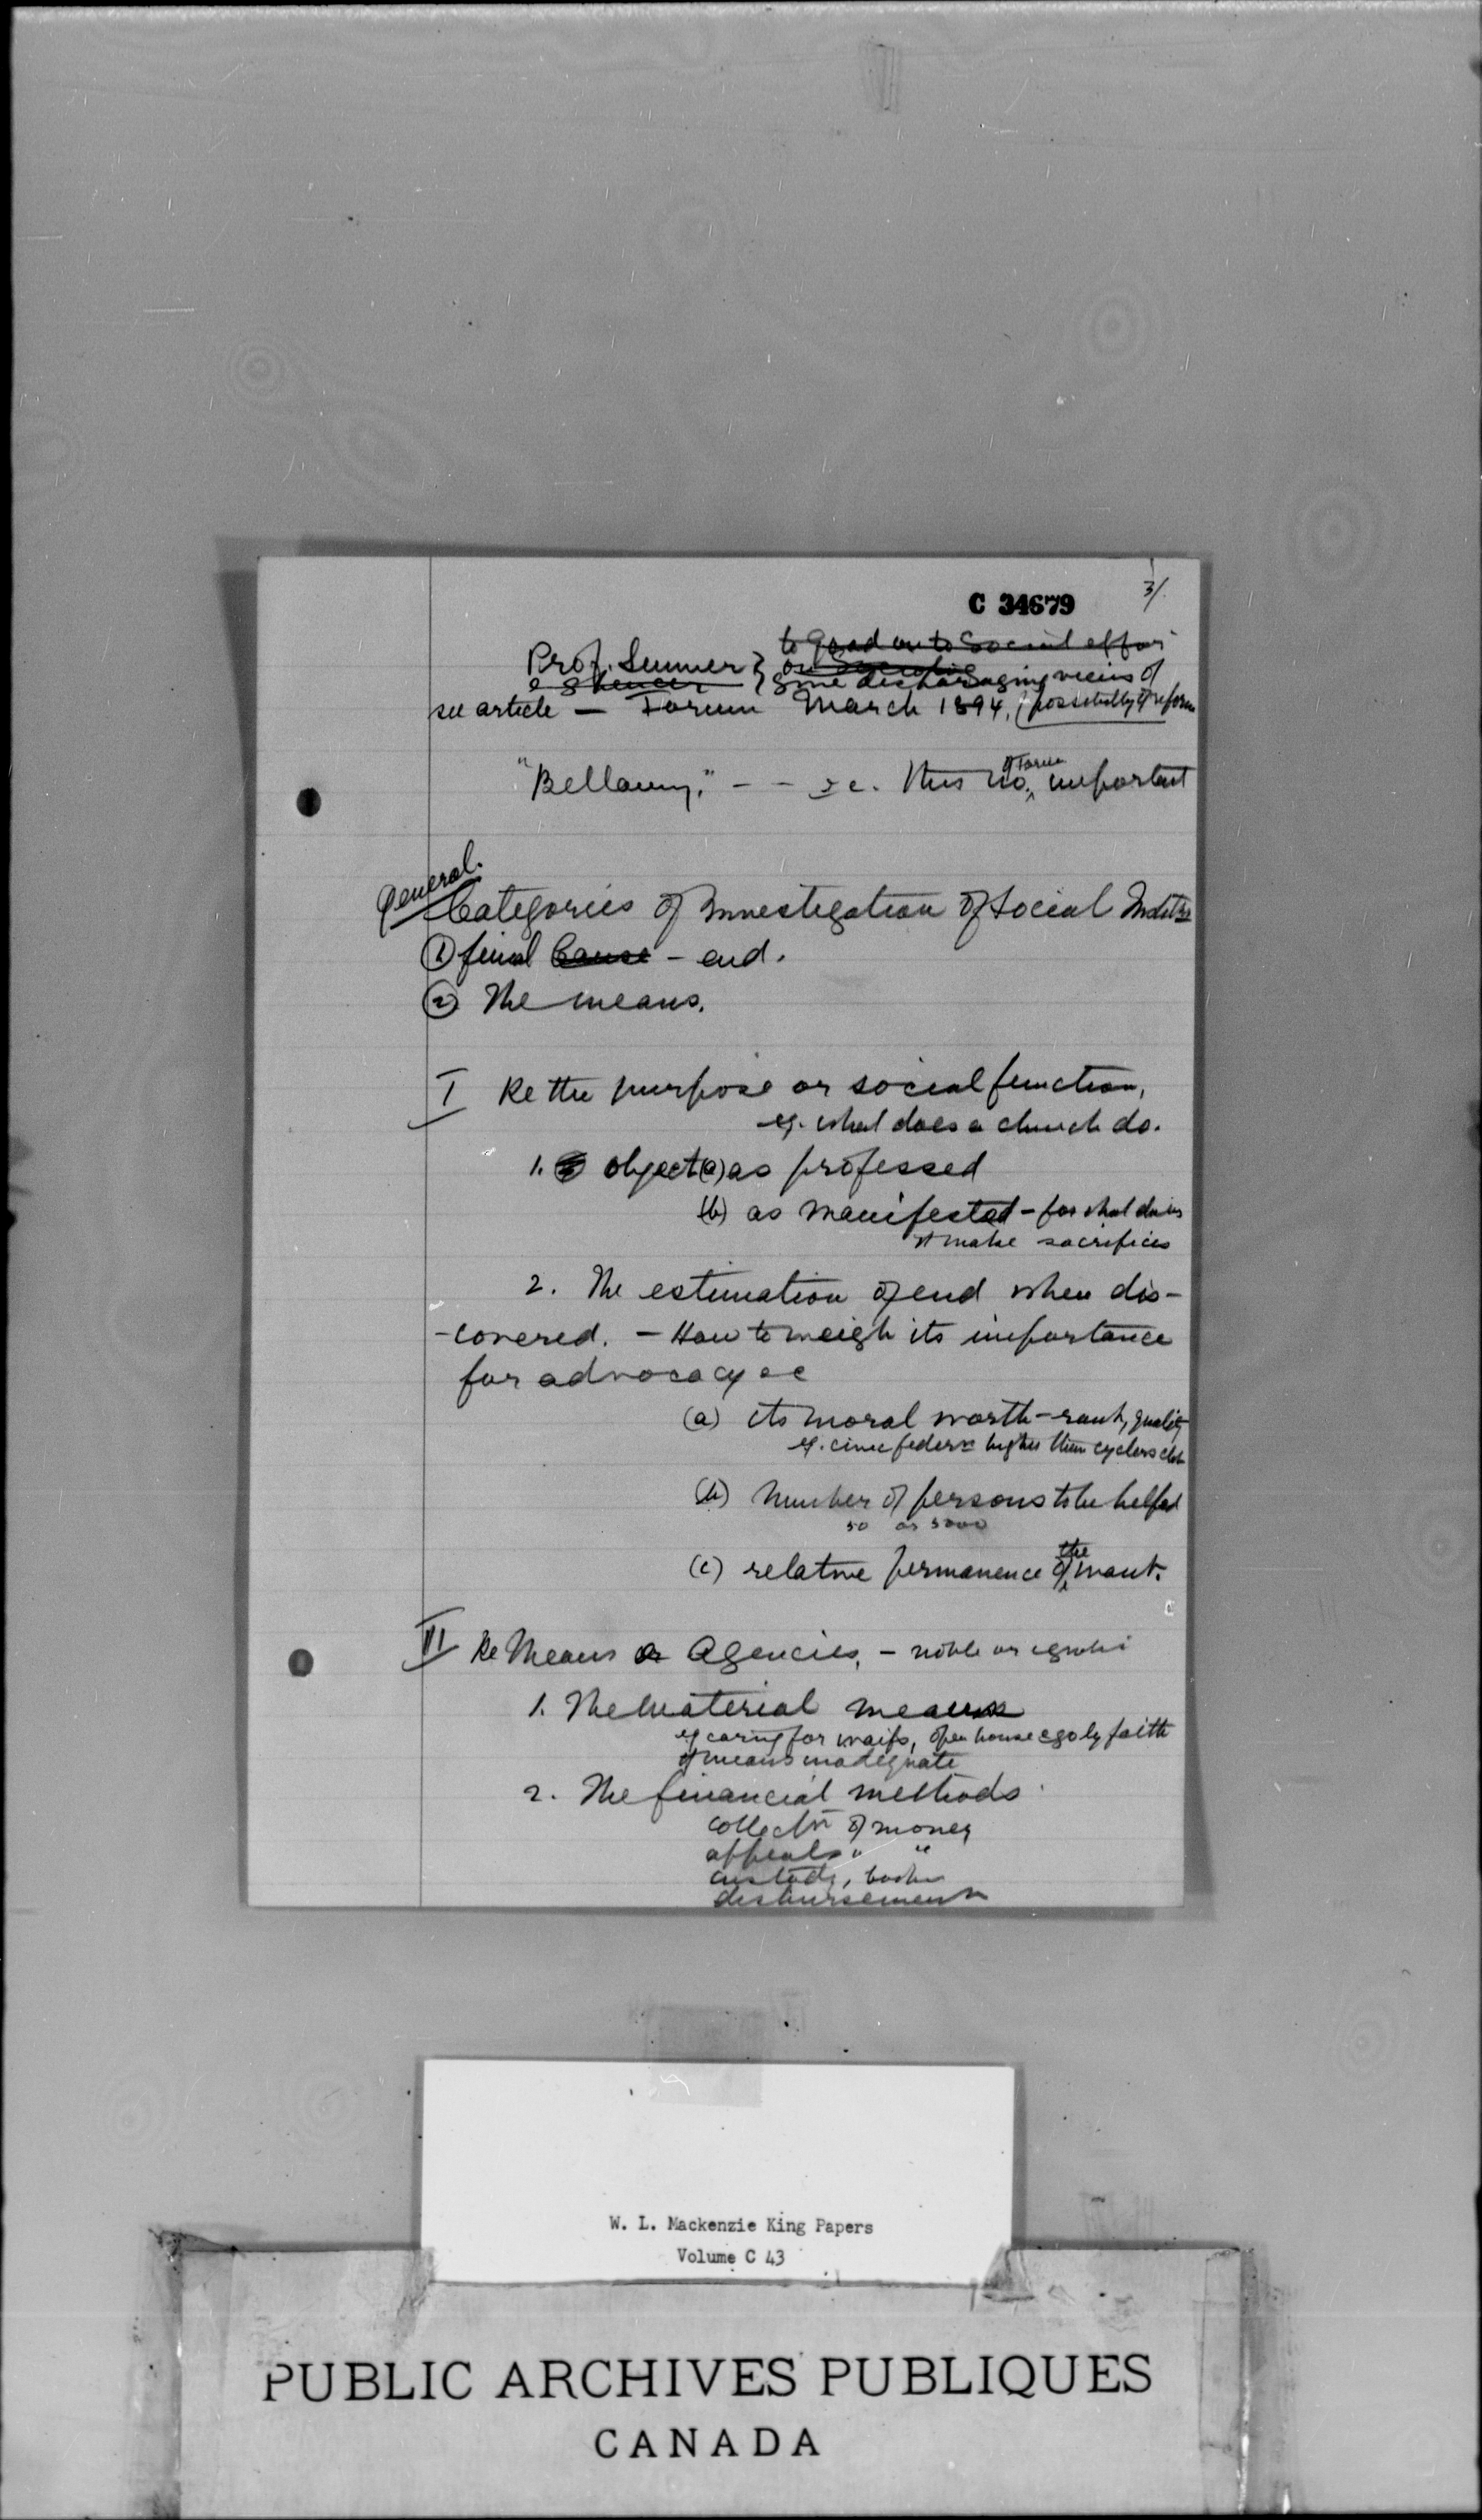 C 34679
3/.
to good on to Social effort
Prof. Sumner } on Socialism
& Spencer } some discouraging views of
see article — Forum March 1894. (possibility of reform
"Bellamy." - - &c. This no. of Forum important
General.
Categories of Investigation of Social Instit^ns
① final Cause - end.
② The means.
I Re the purpose or social function,
eg. what does a church do.
1. object (a) as professed
(b) as manifested - for what does
it make sacrifices
2. The estimation of end when dis-
-covered. - How to weigh its importance
for advocacy &c
(a) its moral worth - rank, quality
eg. civic feder^n higher than cyclers club
(b) Number of persons to be helped
50 or 5000
(c) relative permanence of the want.
II Re Means or Agencies, - noble or ignoble
1. The material means
eg caring for waifs, open house & go by faith
if means inadequate
2. The financial methods.
collect^n of money
appeals " "
custody, books
disbursement
W. L. Mackenzie King Papers
Volume C 43
PUBLIC ARCHIVES PUBLIQUES
CANADA